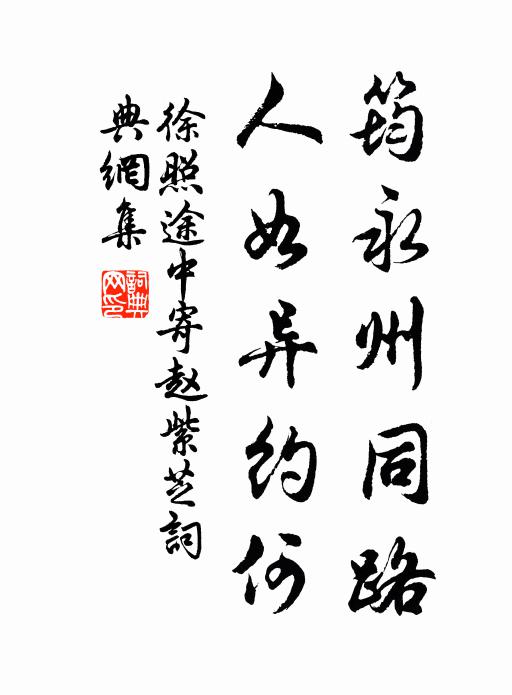 筠永州同路
人如异約何
徐照途中寄赵紫芝詞
典網集
詞典网印